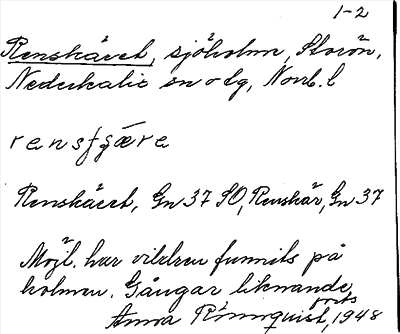 1-2
Renskäret, sjöholm, Storön,
Nederkalix sn o tg, Norrb. l
Renskäret, Gn 37 SO, Renskär, Gn 37
Möjl. har vildren funnits på
holmen. Gångar liknande
forts
Anna Rönnquist, 1948